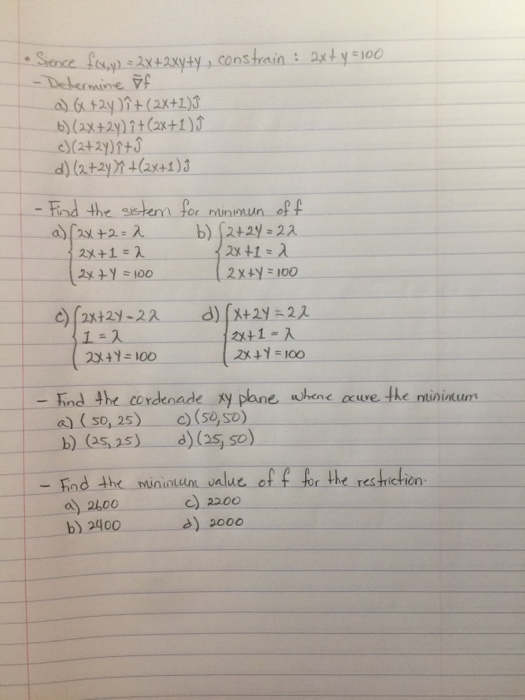 • Sence f(x,y) = 2x+2xy+y, constrain : 2x+y=100
- Determine ∇f
a) (x+2y)î+(2x+1)ĵ
b) (2x+2y)î+(2x+1)ĵ
c) (2+2y)î+ĵ
d) (2+2y)î+(2x+1)ĵ
- Find the sistem for minimun of f
a) { 2x+2=λ b) { 2+2y=2λ
2x+1=λ 2x+1=λ
2x+y=100 2x+y=100
c) { 2x+2y=2λ d) { x+2y=2λ
1=λ 2x+1=λ
2x+y=100 2x+y=100
- Find the cordenade xy plane where ocure the minimum
a) (50,25) c) (50,50)
b) (25,25) d) (25,50)
- Find the minimum value of f for the restriction.
a) 2600 c) 2200
b) 2400 d) 2000